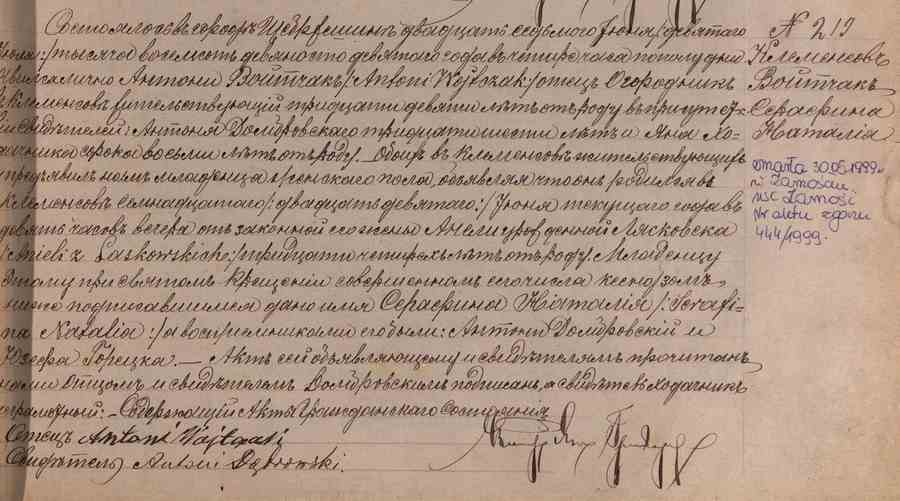 Состоялось въ городѣ Щебржешинѣ двадцать седьмого Іюня /: девятаго
Іюля :/ тысяча восемсотъ девяносто девятаго года въ четыре часа пополудни
Явился лично Антони Войтчакъ /: Antoni Wojtczak :/ отецъ Огородникъ
въ Клеменсовѣ жительствующій тридцати девяти лѣтъ отъ роду въ присутст-
віи свидѣтелей: Антонія Домбровскаго тридцати шести лѣтъ и Яна Хо-
дачника сорока восьми лѣтъ отъ роду. Обоихъ въ Клеменсовѣ жительствующихъ
предъявилъ намъ младенца женскаго пола, объявляя что онъ родился въ
Клеменсовѣ семнадцатаго /: двадцать девятаго :/ Іюня текущаго года въ
девять часовъ вечера отъ законной его жены Анели урожденной Лясковска
/: Anieli z Laskowskich :/ тридцати четырехъ лѣтъ отъ роду Младенцу
этому при святомъ крещеніи совершенномъ сего числа ксендзомъ
ниже подписавшимся дано имя Серафина Наталія /: Serafi-
na Natalia :/ а воспріемниками его были: Антони Домбровскій и
Юзефа Горецка. — Актъ сей объявляющему и свидѣтелямъ прочитанъ
нами Отцомъ и свидѣтелемъ Домбровскимъ подписанъ, а свидѣтель Ходачникъ
неграмотный. — Содержащій Акты Гражданскаго Состоянія
Отецъ Antoni Wojtczak
Свидѣтель Antoni Dąbrowski.
№ 219
Клеменсовъ
Войтчакъ
Серафина
Наталія
zmarła 30.06.1999r.
w Zamościu
USC Zamość
Nr aktu zgonu
444/1999.